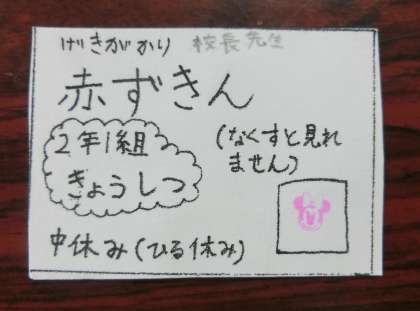 げきがかり 校長先生
赤ずきん
2年1組
きょうしつ
(なくすと見れ
ません)
中休み(ひる休み)